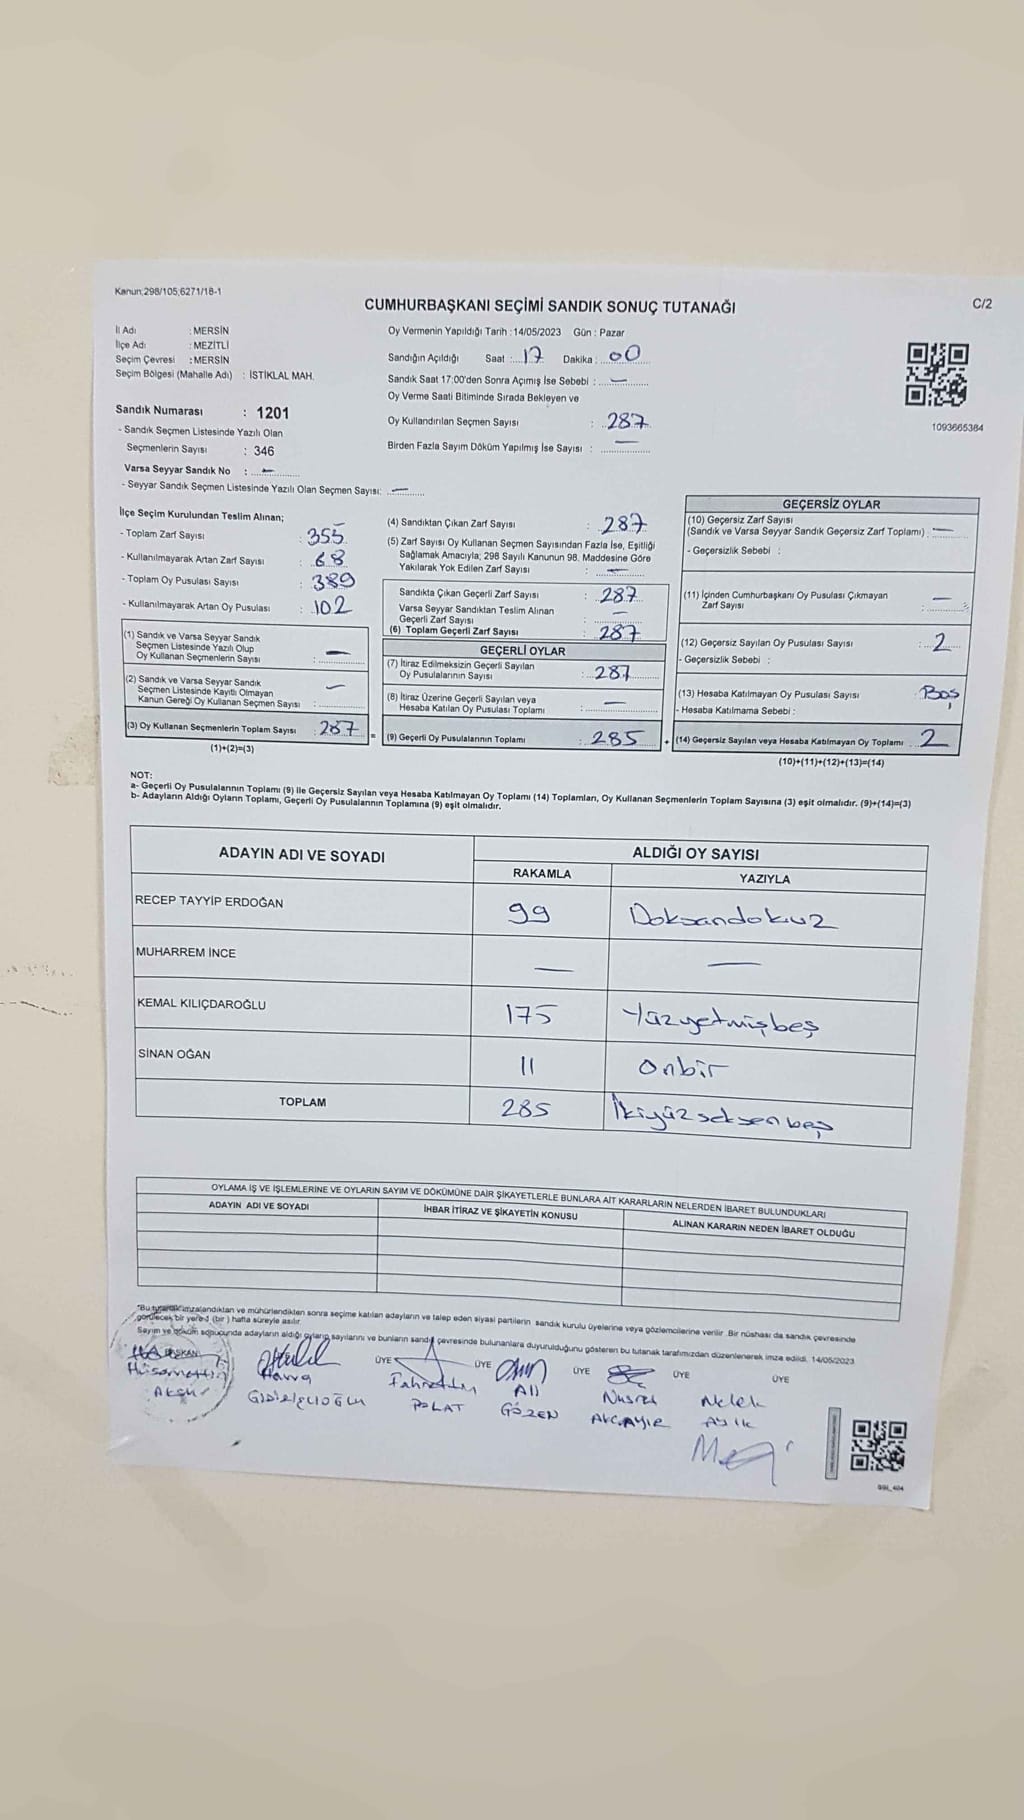 Kanun;298/105;6271/18-1
CUMHURBAŞKANI SEÇİMİ SANDIK SONUÇ TUTANAĞI
C/2
İl Adı : MERSİN
İlçe Adı : MEZİTLİ
Seçim Çevresi : MERSİN
Seçim Bölgesi (Mahalle Adı) : İSTİKLAL MAH.
Sandık Numarası : 1201
- Sandık Seçmen Listesinde Yazılı Olan
Seçmenlerin Sayısı : 346
Varsa Seyyar Sandık No : —
- Seyyar Sandık Seçmen Listesinde Yazılı Olan Seçmen Sayısı: —
Oy Vermenin Yapıldığı Tarih :14/05/2023 Gün : Pazar
Sandığın Açıldığı Saat : 17 Dakika : 00
Sandık Saat 17:00'den Sonra Açımış İse Sebebi : —
Oy Verme Saati Bitiminde Sırada Bekleyen ve
Oy Kullandırılan Seçmen Sayısı : 287
Birden Fazla Sayım Döküm Yapılmış İse Sayısı : —
1093665384
İlçe Seçim Kurulundan Teslim Alınan;
- Toplam Zarf Sayısı : 355
- Kullanılmayarak Artan Zarf Sayısı : 68
- Toplam Oy Pusulası Sayısı : 389
- Kullanılmayarak Artan Oy Pusulası : 102
(1) Sandık ve Varsa Seyyar Sandık
Seçmen Listesinde Yazılı Olup
Oy Kullanan Seçmenlerin Sayısı : —
(2) Sandık ve Varsa Seyyar Sandık
Seçmen Listesinde Kayıtlı Olmayan
Kanun Gereği Oy Kullanan Seçmen Sayısı : —
(3) Oy Kullanan Seçmenlerin Toplam Sayısı : 287
(1)+(2)=(3)
(4) Sandıktan Çıkan Zarf Sayısı : 287
(5) Zarf Sayısı Oy Kullanan Seçmen Sayısından Fazla İse, Eşitliği
Sağlamak Amacıyla; 298 Sayılı Kanunun 98. Maddesine Göre
Yakılarak Yok Edilen Zarf Sayısı : —
Sandıkta Çıkan Geçerli Zarf Sayısı : 287
Varsa Seyyar Sandıktan Teslim Alınan
Geçerli Zarf Sayısı : —
(6) Toplam Geçerli Zarf Sayısı : 287
GEÇERLİ OYLAR
(7) İtiraz Edilmeksizin Geçerli Sayılan
Oy Pusulalarının Sayısı : 287
(8) İtiraz Üzerine Geçerli Sayılan veya
Hesaba Katılan Oy Pusulası Toplamı : —
= (9) Geçerli Oy Pusulalarının Toplamı : 285
GEÇERSİZ OYLAR
(10) Geçersiz Zarf Sayısı
(Sandık ve Varsa Seyyar Sandık Geçersiz Zarf Toplamı) : —
- Geçersizlik Sebebi :
(11) İçinden Cumhurbaşkanı Oy Pusulası Çıkmayan
Zarf Sayısı : —
(12) Geçersiz Sayılan Oy Pusulası Sayısı : 2
- Geçersizlik Sebebi :
(13) Hesaba Katılmayan Oy Pusulası Sayısı : Boş
- Hesaba Katılmama Sebebi :
+ (14) Geçersiz Sayılan veya Hesaba Katılmayan Oy Toplamı : 2
(10)+(11)+(12)+(13)=(14)
NOT:
a- Geçerli Oy Pusulalarının Toplamı (9) ile Geçersiz Sayılan veya Hesaba Katılmayan Oy Toplamı (14) Toplamları, Oy Kullanan Seçmenlerin Toplam Sayısına (3) eşit olmalıdır. (9)+(14)=(3)
b- Adayların Aldığı Oyların Toplamı, Geçerli Oy Pusulalarının Toplamına (9) eşit olmalıdır.
ADAYIN ADI VE SOYADI
ALDIĞI OY SAYISI
RAKAMLA YAZIYLA
RECEP TAYYİP ERDOĞAN 99 Doksandokuz
MUHARREM İNCE — —
KEMAL KILIÇDAROĞLU 175 Yüzyetmişbeş
SİNAN OĞAN 11 Onbir
TOPLAM 285 İkiyüzseksenbeş
OYLAMA İŞ VE İŞLEMLERİNE VE OYLARIN SAYIM VE DÖKÜMÜNE DAİR ŞİKAYETLERLE BUNLARA AİT KARARLARIN NELERDEN İBARET BULUNDUKLARI
ADAYIN ADI VE SOYADI İHBAR İTİRAZ VE ŞİKAYETİN KONUSU ALINAN KARARIN NEDEN İBARET OLDUĞU
"Bu tutanak imzalandıktan ve mühürlendikten sonra seçime katılan adayların ve talep eden siyasi partilerin sandık kurulu üyelerine veya gözlemcilerine verilir .Bir nüshası da sandık çevresinde
görülecek bir yere (bir ) hafta süreyle asılır.
Sayım ve döküm sonucunda adayların aldığı oyların sayılarını ve bunların sandık çevresinde bulunanlara duyurulduğunu gösteren bu tutanak tarafımızdan düzenlenerek imza edildi. 14/05/2023
BAŞKAN ÜYE ÜYE ÜYE ÜYE ÜYE
Hüsamettin Fahrettin Ali Melek
AKSU POLAT GÖZEN AYIK